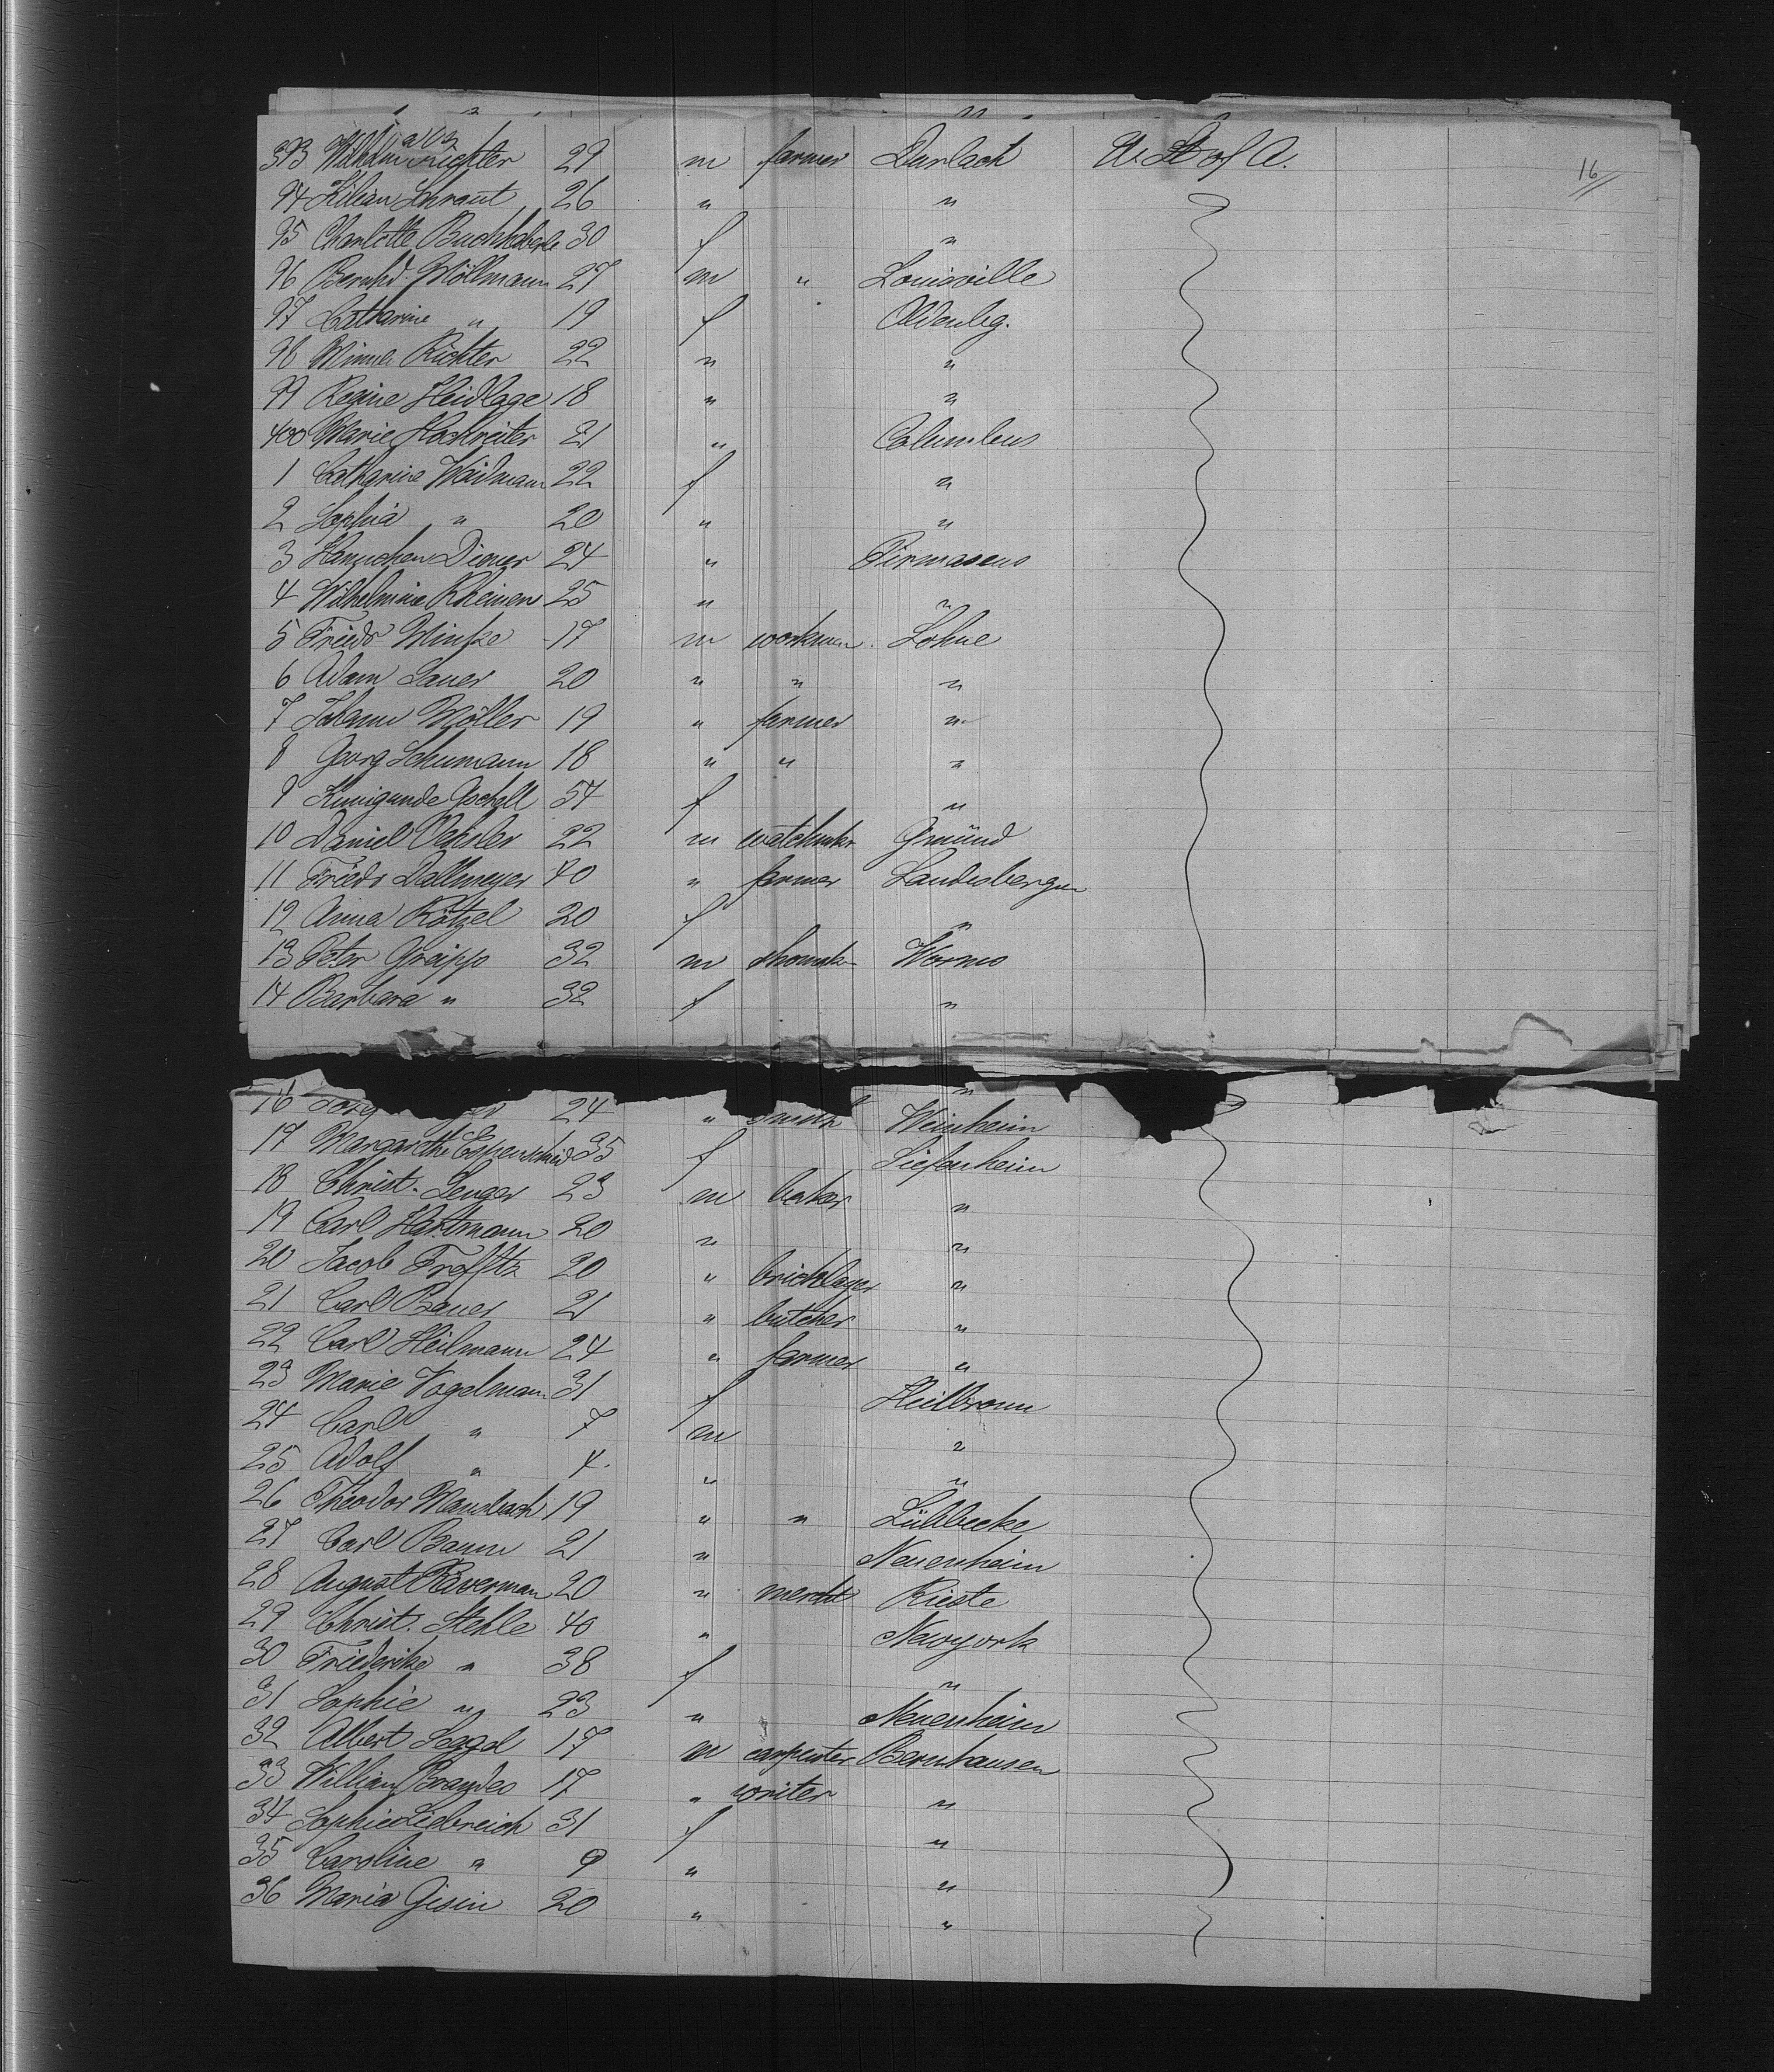 16
393 Wilhelm Richter 29 m farmer Durlach U. St of A.
94 Kilian Schraut 26 " "
95 Charlotte 30 f "
96 Bernhd. Möllmann 27 m " Louisville
97 Catharine " 19 f Oldenbg.
98 Minna Richter 22 " "
99 Regine Heidlage 18 " "
400 Marie Hochreiter 21 " Columbus
1 Catharine Weidmann 22 f "
2 Sophia " 20 " "
3 Hannchen Diener 24 " Pirmasens
4 Wilhelmine Rheinen 25 " "
5 Friedr Minke 17 m workman Lohne
6 Adam Sauer 20 " " "
7 Johann Möller 19 " farmer "
8 Georg Schumann 18 " " "
9 Kunigunde Gschell 54 f "
10 Daniel 22 m watchmkr Gmünd
11 Friedr Dallmeyer 40 " farmer Landesbergen
12 Anna Rötzel 20 f "
13 Peter Greipp 32 m shomak Worms
14 Barbara " 32 f "
"
16 24 " Weinheim
17 Margarethe Espenschied 35 f Siefenheim
18 Christ. Senger 23 m baker "
19 Carl Hartmann 20 " "
20 Jacob Trefftz 20 " bricklayer "
21 Carl Bauer 21 " butcher "
22 Carl Heilmann 24 " farmer "
23 Marie Vogelman 31 f Heilbronn
24 Carl " 7 m "
25 Adolf " 4 " "
26 Theodor Mansbach 19 " " Lübbecke
27 Carl Baum 21 " Neuenheim
28 August Räverman 20 " mercht Rieste
29 Christ. Stehle 40 " Newyork
30 Friederike " 38 f "
31 Sophie " 23 " Neuenheim
32 Albert 17 m carpenter Bernhausen
33 William Brandes 17 " writer "
34 Sophie Liebreich 31 f "
35 Caroline " 9 " "
36 Maria Gisin 20 " "